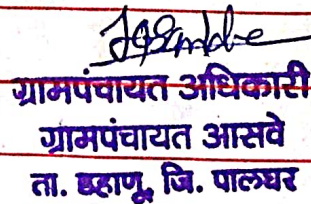 ग्रामपंचायत अधिकारी
ग्रामपंचायत आसवे
ता. डहाणू, जि. पालघर